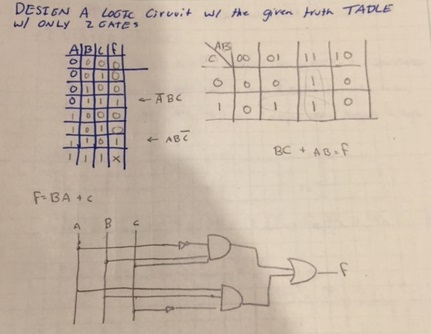 DESIGN A LOGIC Circuit w/ the given truth TABLE
w/ ONLY 2 GATES
A B C F
0 0 0 0
0 0 1 0
0 1 0 0
0 1 1 1 ← A̅BC
1 0 0
1 0 1 0
1 1 0 1 ← ABC̅
1 1 1 X
AB
C 00 01 11 10
0 0 0 1 0
1 0 1 1 0
BC + AB = F
F = BA + C
A B C
F